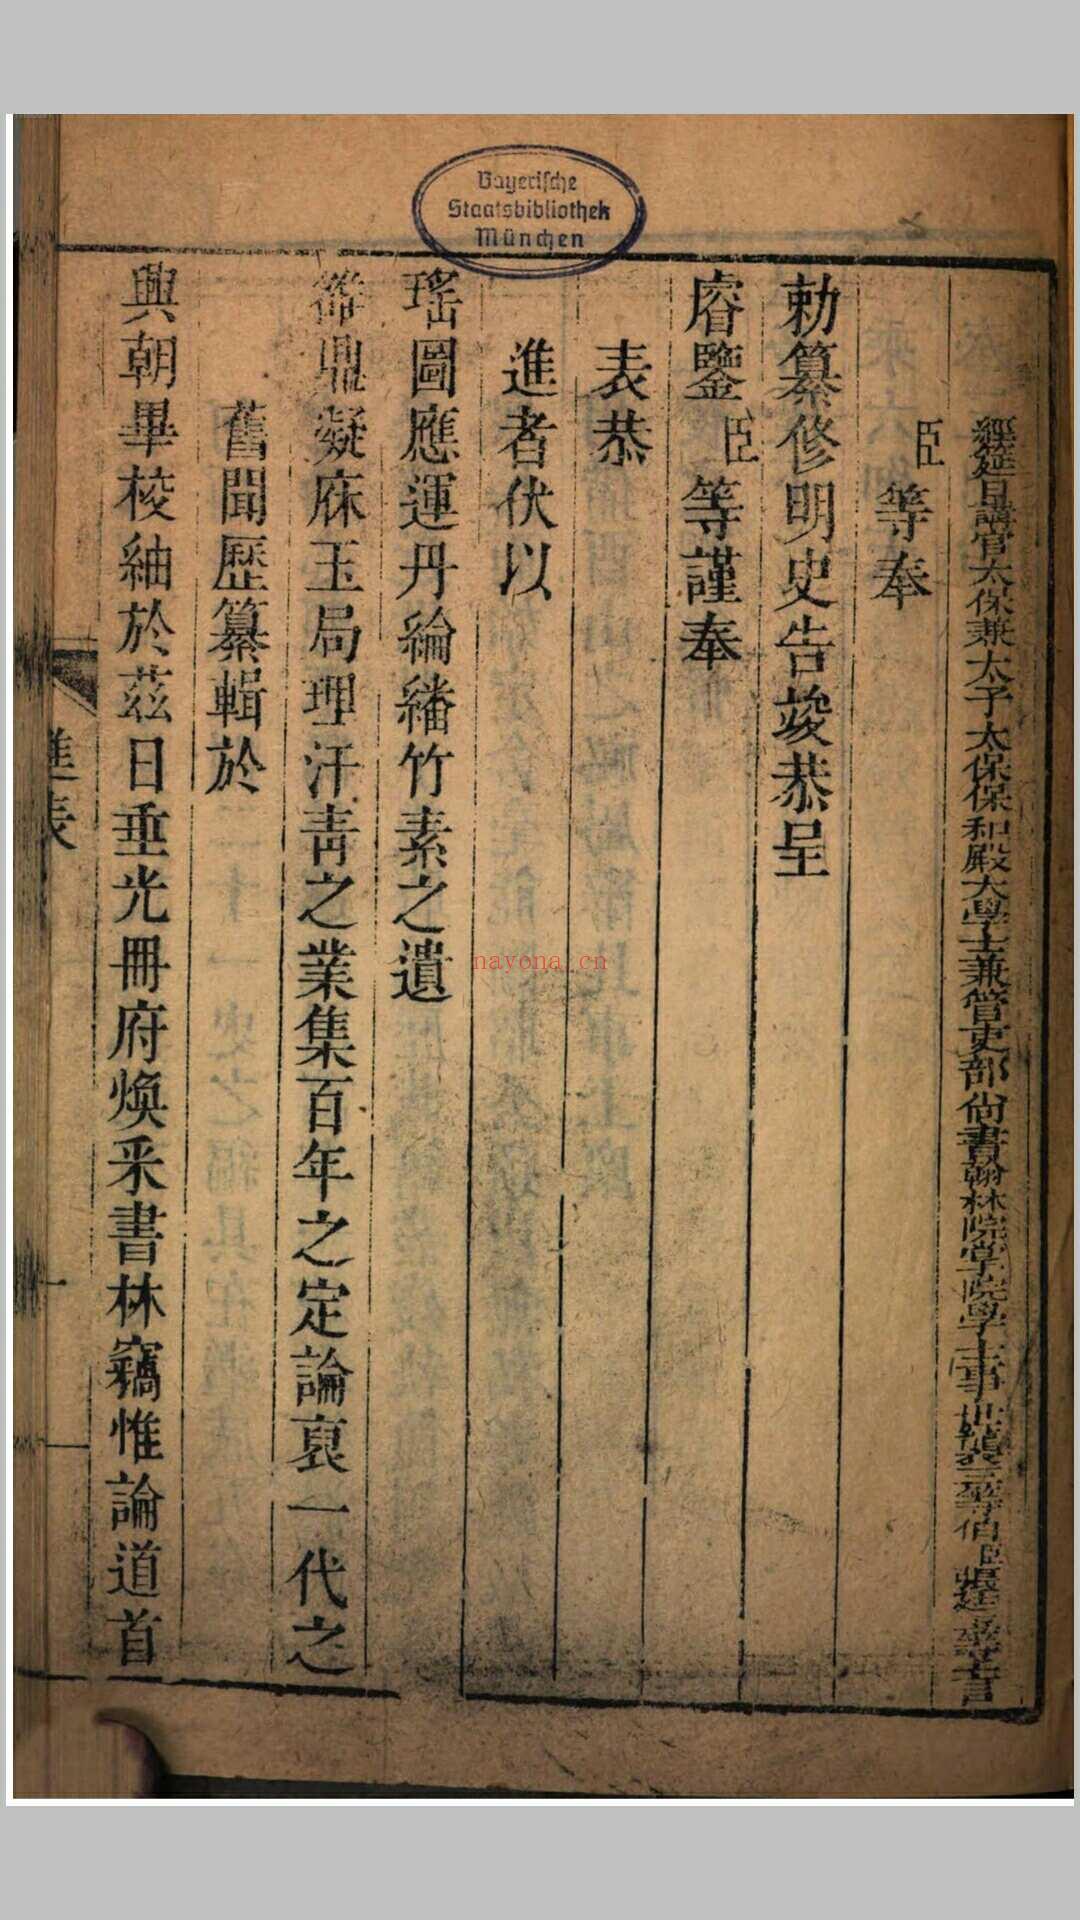 Bayerische
Staatsbibliothek
München
經筵日講官太保兼太子太保保和殿大學士兼管吏部尚書翰林院掌院學士事世襲三等伯臣張廷玉等上言
臣等奉
勅纂修明史告竣恭呈
睿鑒臣等謹奉
表恭
進者伏以
瑤圖應運丹綸繙竹素之遺
鼎凝庥玉局理汗青之業集百年之定論裒一代之
舊聞歷纂輯於
興朝畢校紬於茲日垂光冊府煥采書林竊惟論道首
進表
一
nayona.cn